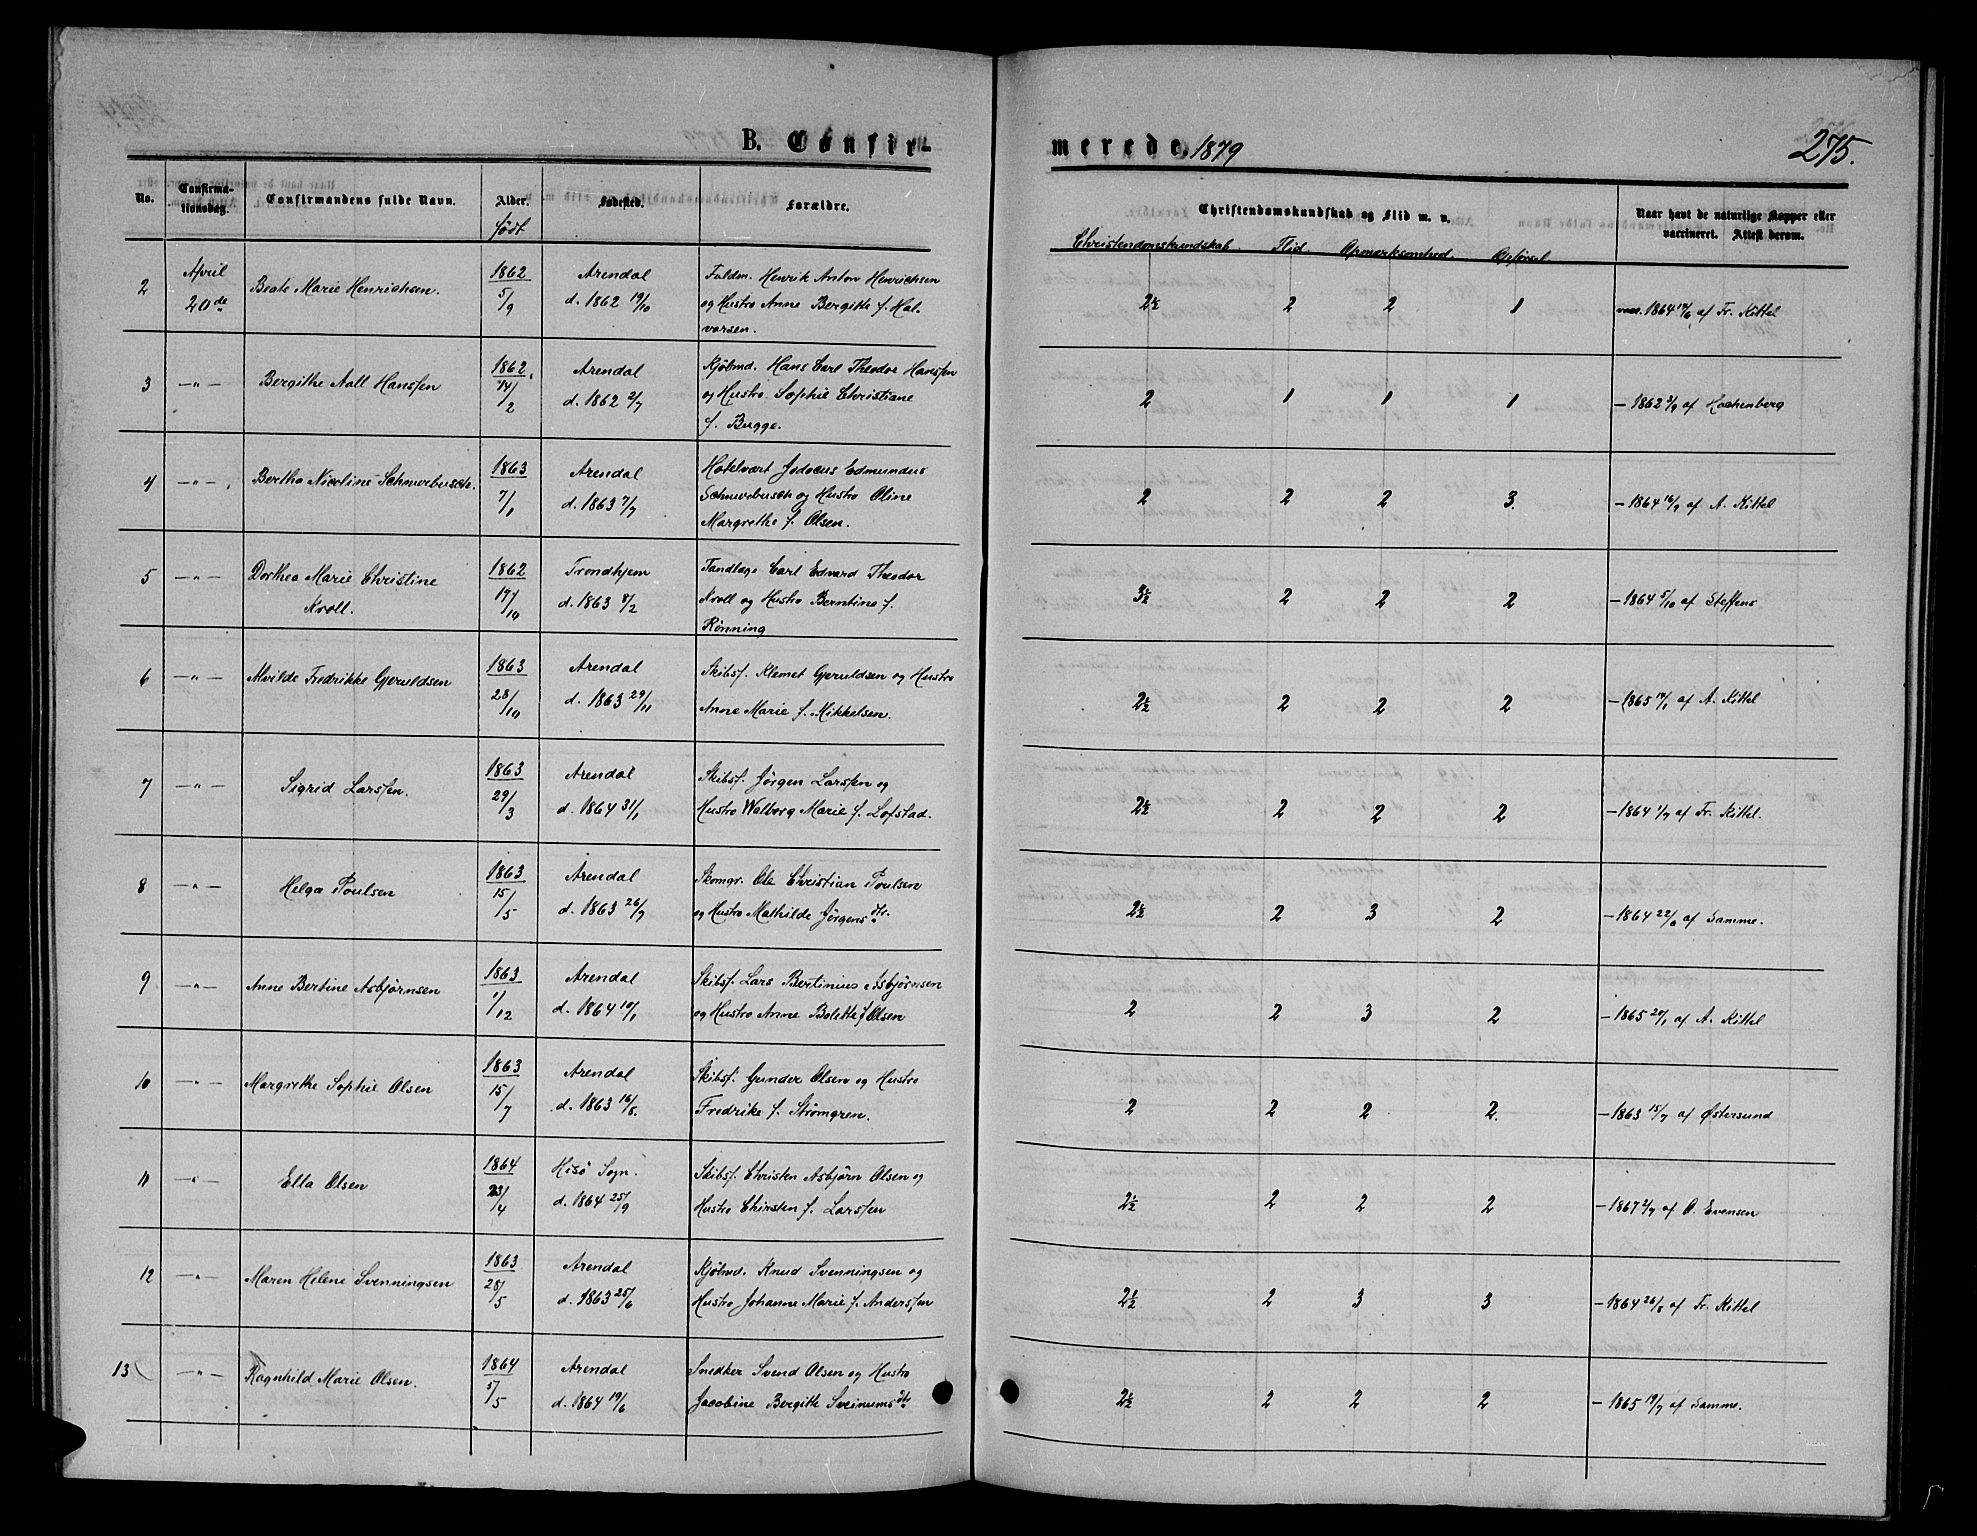 B. Confir-
merede 1879
275.
No. Confirma-tionsdag. Confirmandens fulde Navn. Alder. født Fødested. Forældre.
Christendomskundskab og Flid m. v.
Christendomskundskab. Flid. Opmærksomhed. Opførsel.
Naar havt de naturlige Kopper eller vaccineret. Attest derom.
2 April 20de Beate Marie Henrichsen. 1862 5/9 Arendal d. 1862 19/10 Fuldm. Henrik Anton Henrichsen
og Hustro Anne Bergitte f. Hal-
vorsen.
2½ 2 2 1 vac. 1864 14/6 af Fr. Kittel
3 —"— Bergithe Aall Hanssen 1862 14/2 Arendal d. 1862 2/7 Kjøbmd. Hans Carl Theodor Hanssen
og Hustro Sophie Christiane
f. Bugge.
2 1 1 1 — 1862 3/9 af Hochenberg
4 —"— Bertha Nicoline Schmerbusch. 1863 7/1 Arendal d. 1863 7/7 Hotelvært Jodocus Edmundus
Schmerbusch og Hustro Oline
Margrethe f. Olsen.
2 2 2 3. — 1864 16/9 af A. Kittel
5 —"— Dorthea Marie Christine
Kroll. 1862 17/10 Trondhjem d. 1863 8/2 Tandlæge Carl Edvard Theodor
Kroll og Hustro Berntine f.
Rönning
3½ 2 2 2 — 1864 5/10 af Steffens
6 —"— Alvilde Fredrikke Gjeruldsen 1863 28/10 Arendal d. 1863 29/11 Skibsf. Klemet Gjeruldsen og Hustro
Anne Marie f. Mikkelsen.
2½ 2 2 2 — 1865 14/1 af A. Kittel
7 —"— Sigrid Larssen. 1863 29/3 Arendal d. 1864 31/1 Skibsf. Jörgen Larssen og
Hustro Walborg Marie f. Lofstad.
2½ 2 2 2 — 1864 1/7 af Fr. Kittel.
8 —"— Helga Poulsen 1863 15/5 Arendal d. 1863 26/7 Skomgr. Ole Christian Poulsen
og Hustro Mathilde Jörgensdtr.
2½ 2 3 2 — 1864 22/6 af Samme.
9 —"— Anne Bertine Asbjørnsen 1863 /12 Arendal d. 1864 10/1 Skibsf. Lars Bertinius Asbjørnsen
og Hustro Anne Bolette f. Olsen
2 2 3 2 — 1865 20/1 af A. Kittel
10 —"— Margrethe Sophie Olsen 1863 15/7 Arendal d. 1863 16/8. Skibsf. Gunder Olsen og Hustro
Fredrike f. Strömgren.
2 2 2 2. — 1863 15/7 af Østersund
11 —"— Ella Olsen 1864 23/4 Hisö Sogn. d. 1864 25/9 Skibsf. Christen Asbjørn Olsen og
Hustro Chirsten f. Larssen
2½ 2 2 2 — 1867 2/7 af O. Evensen
12 —"— Maren Helene Svenningsen 1863 28/5 Arendal d. 1863 25/6 Kjøbmd. Knud Svenningsen og
Hustro Johanne Marie f. Anderssen
2½ 2 3 3 — 1864 26/8 af Fr. Kittel
13 —"— Ragnhild Marie Olsen. 1864 5/5 Arendal d. 1864 19/6 Snedker Svend Olsen og Hustro
Jacobine Bergitte Sveinumsdtr
2½ 2 2 2 — 1865 19/7 af Samme.